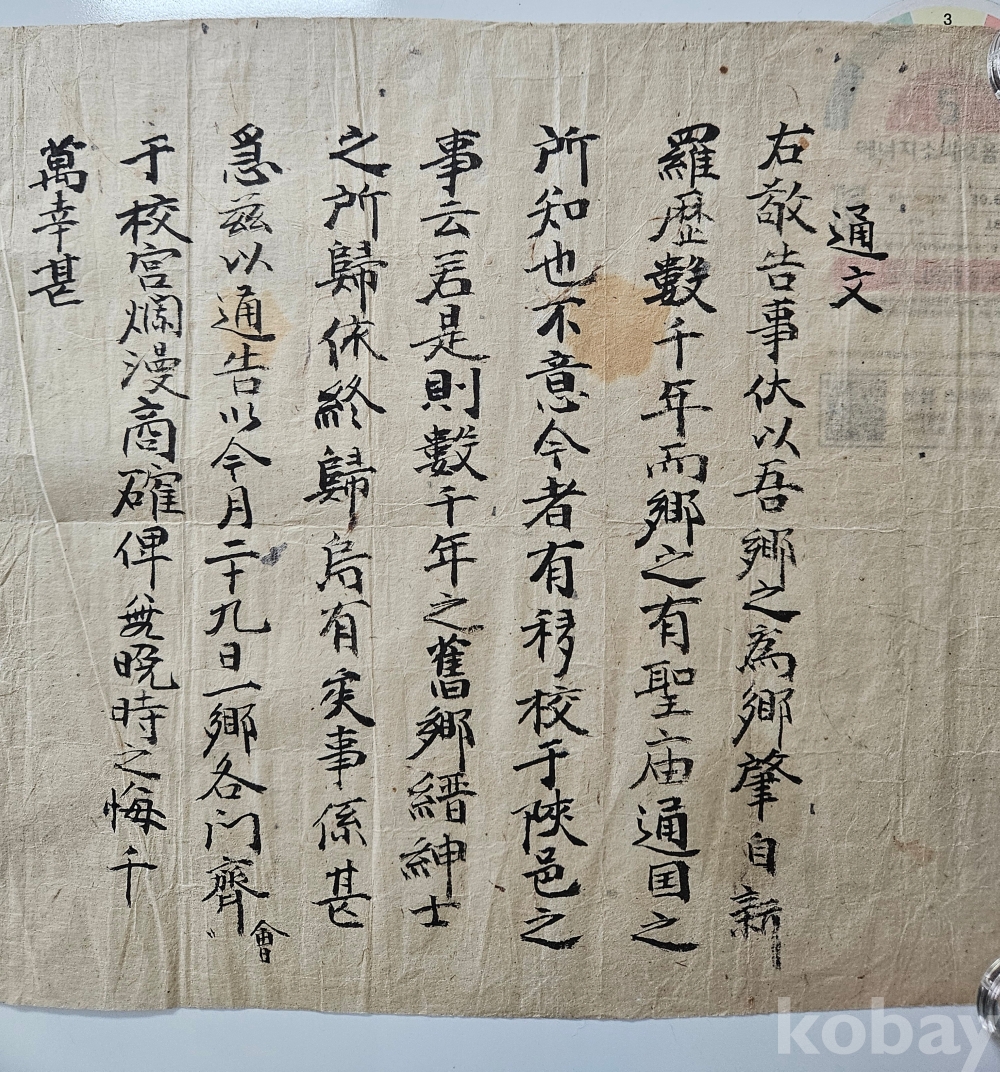 通文
右敬告事伏以吾鄉之為鄉肇自新
羅歷數千年而鄉之有聖庙通国之
所知也不意今者有移校于陜邑之
事云若是則數千年之舊鄉縉紳士
之所歸依終歸烏有矣事係甚
急茲以通告以今月二十九日一鄉各门齊會
于校宮爛漫商確俾無晩時之悔千
萬幸甚
3
kobay